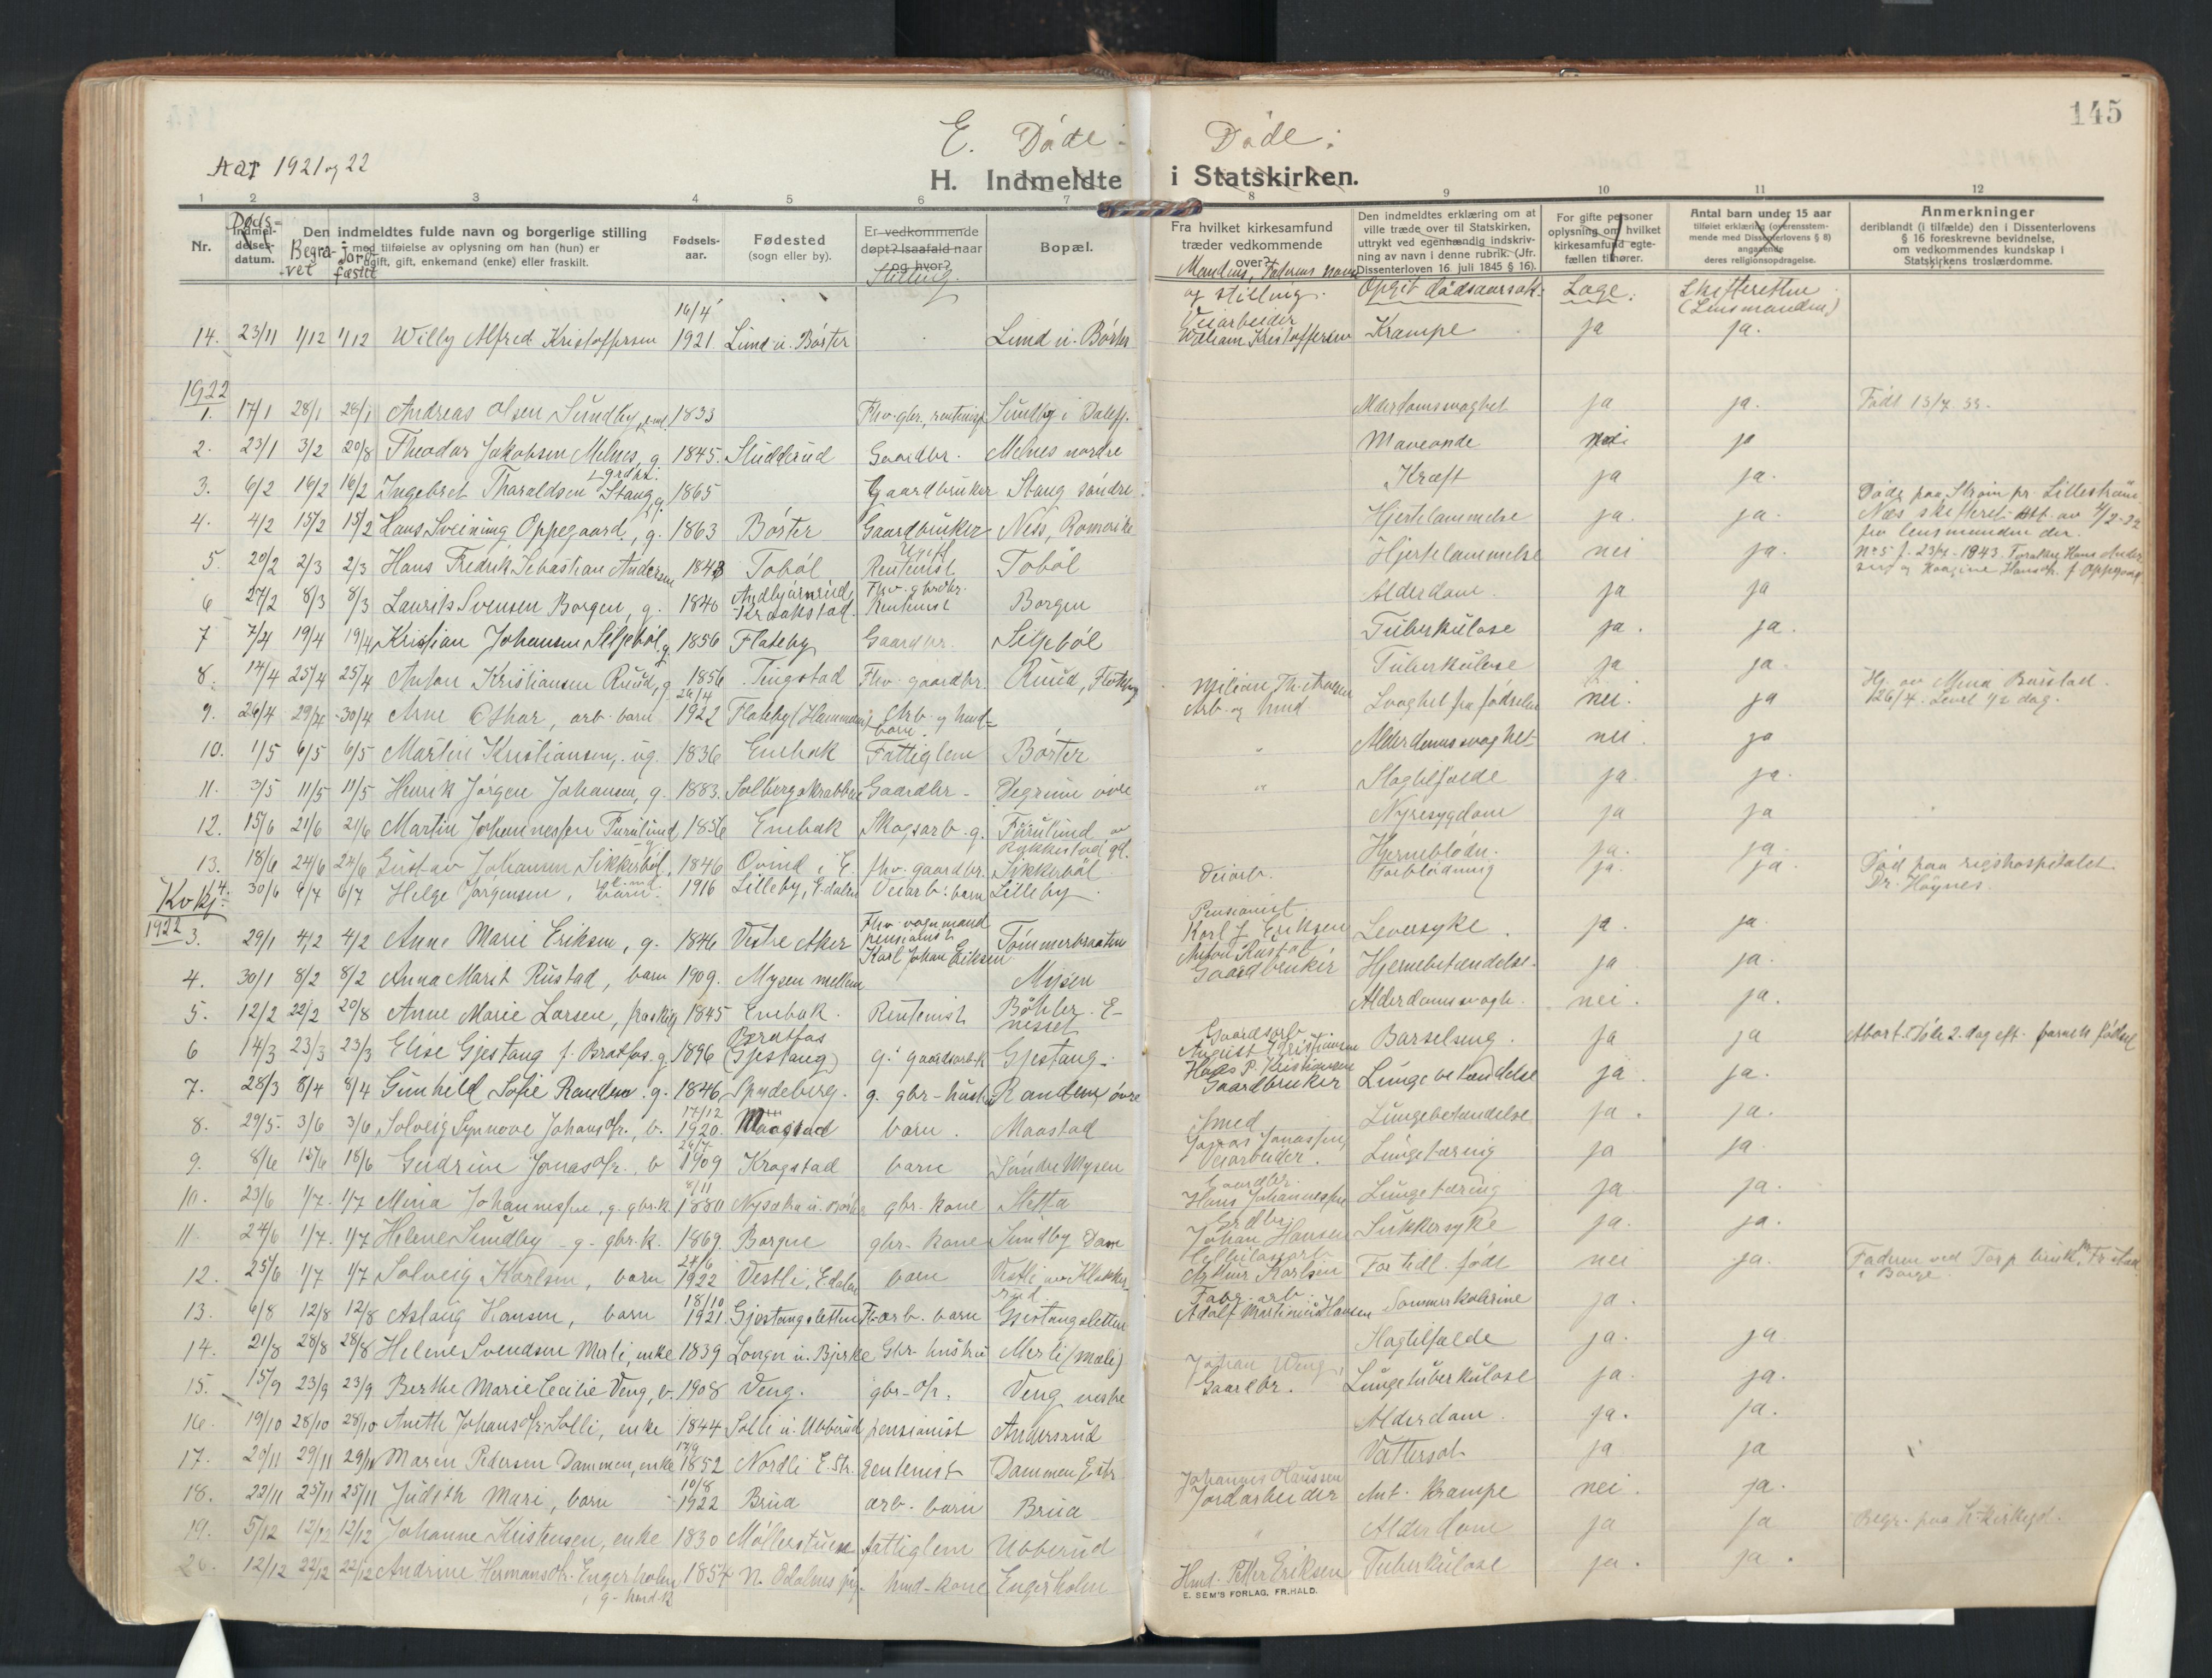 145
E. Døde:
Døde:
Aar 1921 og 22
H. Indmeldte i Statskirken.
1 2 3 4 5 6 7 8 9 10 11 12
Nr.
Døds-
Indmel-
delses-
datum.
Begra-
vet
Jord-
fæstet
Den indmeldtes fulde navn og borgerlige stilling
med tilføielse av oplysning om han (hun) er
ugift, gift, enkemand (enke) eller fraskilt.
Fødsels-
aar.
Fødested
(sogn eller by).
Er vedkommende
døpt? Isaafald naar
og hvor?
Stilling.
Bopæl.
Fra hvilket kirkesamfund
træder vedkommende
over?
Mandens, Faderens navn
og stilling.
Den indmeldtes erklæring om at
ville træde over til Statskirken,
uttrykt ved egenhændig indskriv-
ning av navn i denne rubrik. (Jfr.
Dissenterloven 16. juli 1845 § 16).
Opgit dødsaarsak:
For gifte personer
oplysning om hvilket
kirkesamfund egte-
fællen tilhører.
Læge:
Antal barn under 15 aar
tilføiet erklæring (overensstem-
mende med Dissenterlovens § 8)
angaaende
deres religionsopdragelse.
Skifteretten
(Lensmanden)
Anmerkninger
deriblandt (i tilfælde) den i Dissenterlovens
§ 16 foreskrevne bevidnelse,
om vedkommendes kundskap i
Statskirkens troslærdomme.
14. 23/11 1/12 1/12 Willy Alfred Kristoffersen 16/4 1921 Lund u. Børter Lund u. Børter Veiarbeider William Kristoffersen Krampe ja ja.
1922
1. 17/1 28/1 28/1 Andreas Olsen Sundby, enl. 1833 Fhv. gbr., rentenist Sundby i Dalefj. Alderdomssvaghet ja ja. Født 13/7 33.
2. 23/1 3/2 20/8 Theodor Jakobsen Melnes, g. 1845. Sludderud Gaardbr. Melnes nordre Maveonde nei ja
3. 6/2 16/2 16/2 Ingebret Tharaldsen Stang, g. 1865 Gaardbruker Stang søndre Kræft ja ja.
4. 4/2 15/2 15/2 Hans Sveining Oppegaard, g. 1863 Børter Gaardbruker Ness, Romerike Hjertelammelse ja. ja. Døde paa Strøm pr. Lillestrøm
Næs skifteret att. av 7/2-22
fra lensmanden der.
5. 20/2 2/3 2/3 Hans Fredrik Sebastian Andersen 1843 Tobøl Rentenist Tobøl Hjertelammelse nei ja. No 5 f. 23/4-1843. Foræld. Hans Ander
sen og Kaagine Hansdr. f. Oppegaard
6 27/2 8/3 8/3 Laurits Svensen Borgen, g. 1840 Andbjørnrud, Kraakstad. Fhv. gbrdbr. Rentenist Borgen Alderdom. ja ja
7 7/4 19/4 19/4 Kristian Johansen Siljebøl, g. 1856 Flateby Gaardbr. Siljebøl Tuberkulose ja. ja.
8. 14/4 25/4 25/4 Anton Kristiansen Ruud, g. 1856 Tingstad Fhv. gaardbr. Ruud, Flateby Tuberkulose ja ja.
9. 26/4 29/4 30/4 Arne Othar, arb. barn 26/4 1922 Flateby (Hammeren) Arb. og husm. barn. Arb. og husm Svaghet fra fødselen nei. ja Hj. av Mina Burstad.
26/4. Levet 1/2 dag.
10. 1/5 6/5 6/5 Martin Kristiansen, ug. 1836 Enebak Fattiglem Børter " Alderdomssvaghet nei. ja
11. 3/5 11/5 11/5 Henrik Jørgen Johansen, g. 1883. Solbergskrabben Gaardbr. Degrum øvre " Slagtilfælde ja. ja.
12. 15/6 21/6 21/6 Martin Johannessen Furulund 1856 Enebak Skogsarb. g. Furulund av Rakkestad gd. Nyresygdom ja ja
13. 18/6 24/6 24/6 Gustav Johansen Sikkerbøl, 1846 Ovind i E. fhv. gaardbr. Sikkerbøl. Hjernebløđn. ja. ja
4. 30/6 6/7 6/7 Helge Jørgensen, barn. 1916 Lilleby, Edalen Veiarb. barn Lilleby. Veiarb. Forblødning ja. ja Død paa rigshospitalet.
Dr. Høynes.
Kvkj.
1922
3. 29/1 4/2 4/2 Anne Marie Eriksen, g. 1846 Vestre Aker Fhv. vognmand pensionist Karl Johan Eriksen Tømmerbraaten Pensionist. Karl J. Eriksen Leversyke. ja. ja
4. 30/1 8/2 8/2 Anna Marit Rustad, barn 1909. Mysen mellem Mysen Anton Rustad Gaardbruker Hjernebetændelse. ja ja.
5. 12/2 22/2 20/8 Anne Marie Larsen, fraskilt 1845 Enebak. Rentenist Bøhler. E- nesset Alderdomssvagh. nei. ja.
6 14/3 23/3 23/3 Elise Gjestang f. Bratfos. g. 1896 Bratfos (Gjestang) g. gaardsarb.k Gjestang. Gaardsarb. August Kristiansen Barselseng. ja ja Abort. Døde 2. dag eft. barnets fødsel
7. 28/3 8/4 8/4 Gunhild Sofie Randem. g. 1846 Spydeberg. g. gbr-hustru Randem, øvre Hans P. Kristiansen Gaardbruker Lungebetændelse ja. ja.
8. 29/5 3/6 3/6 Solveig Synnøve Johansdr., b. 17/12 1920. Maastad barn. Maastad Smed Lungebetændelse ja. ja.
9. 8/6 15/6 18/6 Gudrun Jonasdr. b 26/7 1909 Krogstad barn Søndre Mysen Jonas Jonassen Veiarbeider. Lungetæring ja ja.
10. 23/6 1/7. 1/7 Mina Johannessen, g. gbr.k. 8/11 1880 Nysætra u. Børter gbr. kone Sletta Gaardbr. Hans Johannessen Lungetæring ja ja.
11. 24/6 1/7. 1/7 Helene Sundby g. gbr. k. 1869. Borgen gbr. kone Sundby Dam Grdbr. Johan Hansen Sukkersyke ja. ja.
12. 25/6 1/7 1/7 Solveig Karlsen, barn 24/6 1922 Vestli, Edalen barn Vestli av Klokke-rud. Cellulosearb. Arthur Karlsen For tidl. født nei ja. Faderen ved Torp bruk, pr. Fr.stad
i Borge.
13. 6/8 12/8 12/8 Aslaug Hansen, barn 18/10 1921. Gjestangsletten F. arb. barn Gjestangsletten Fabr.-arb. Adolf Martinius Hansen Sommerkolerine ja.
14. 21/8 28/8 28/8 Helene Svendsen Merli, enke 1839 Longn u. Bjerke Gbr. hustru Merli (Mæli) Slagtilfælde ja. ja
15. 15/9 23/9 23/9 Berthe Marie Cecilie Veng, b. 1908 Veng. gbr-dr. Veng vestre Johan Veng, Gaardbr. Lungetuberkulose ja. ja.
16. 19/10 28/10 28/10 Anette Johansdr. Solli, enke 1844 Solli u. Ubberud pensionist Andersrud Alderdom. ja. ja.
17. 20/11 29/11 29/11 Maren Pedersen Dammen, enke 17/9 1852 Nordli E. Str. rentenist Dammen E. str. Vattersot ja ja
18. 22/11 25/11 25/11 Judith Mari, barn 10/8 1922 Brua arb. barn Brua Johannes Hanssen Jordarbeider Ant. Krampe nei. ja.
19. 5/12 12/12 12/12 Johanne Kristensen, enke 1830 Møllerstuen fattiglem Ubberud " Alderdom ja ja Begr. paa H. kirkegd.
20. 12/12 22/12 22/12 Andrine Hermansdr. Engerholm, g. husm. k. 1854 N. Odalens pg. husm-kone Engerholm Husm. Petter Eriksen Tuberkulose ja. ja.
E. SEM'S FORLAG, FR.HALD.